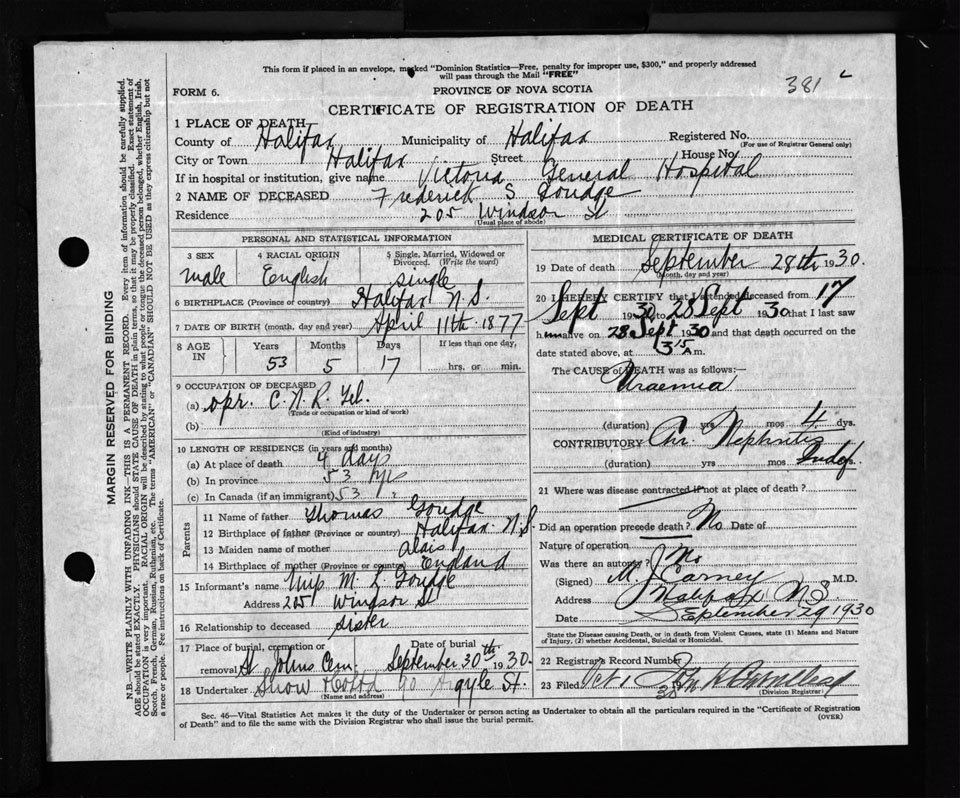 This form if placed in an envelope, marked "Dominion Statistics—Free, penalty for improper use, $300," and properly addressed
will pass through the Mail "FREE"
381
FORM 6.
PROVINCE OF NOVA SCOTIA
CERTIFICATE OF REGISTRATION OF DEATH
1 PLACE OF DEATH
County of Halifax Municipality of Halifax Registered No.
(For use of Registrar General only)
City or Town Halifax Street House No.
If in hospital or institution, give name Victoria General Hospital
2 NAME OF DECEASED Frederick S Goudge
Residence 205 Windsor St
(Usual place of abode)
PERSONAL AND STATISTICAL INFORMATION
3 SEX 4 RACIAL ORIGIN 5 Single, Married, Widowed or Divorced. (Write the word)
male English single
6 BIRTHPLACE (Province or country) Halifax N.S.
7 DATE OF BIRTH (month, day and year) April 11th 1877
8 AGE IN Years Months Days If less than one day,
53 5 17 hrs. or min.
9 OCCUPATION OF DECEASED
(a) opr. C.N.R. Tel.
(Trade or occupation or kind of work)
(b)
(Kind of industry)
10 LENGTH OF RESIDENCE (in years and months)
(a) At place of death 4 days
(b) In province 53 yrs
(c) In Canada (if an immigrant) 53 "
Parents
11 Name of father Thomas Goudge
12 Birthplace of father (Province or country) Halifax N.S.
13 Maiden name of mother
14 Birthplace of mother (Province or country) England
15 Informant's name M. L. Goudge
Address 205 Windsor St
16 Relationship to deceased sister
17 Place of burial, cremation or removal St Johns Cem. Date of burial September 30th 1930.
18 Undertaker Snow 90 Argyle St.
(Name and address)
MEDICAL CERTIFICATE OF DEATH
19 Date of death September 28th 1930.
(Month, day and year)
20 I HEREBY CERTIFY that I attended deceased from 17
Sept 1930 to 28 Sept 1930 that I last saw
h alive on 28 Sept 1930 and that death occurred on
date stated above, at 3 15 A m.
The CAUSE OF DEATH was as follows:—
Uraemia
(duration) yrs mos 4 dys.
CONTRIBUTORY Chr. Nephritis
(duration) yrs mos Indef.
21 Where was disease contracted if not at place of death?
Did an operation precede death? No Date of
Nature of operation
Was there an autopsy? No
(Signed) M J Carney M.D.
Address Halifax N S
Date September 29 1930
State the Disease causing Death, or in death from Violent Causes, state (1) Means and Nature
of Injury, (2) whether Accidental, Suicidal or Homicidal.
22 Registrar's Record Number
23 Filed Oct 1 30
(Division Registrar)
Sec. 46—Vital Statistics Act makes it the duty of the Undertaker or person acting as Undertaker to obtain all the particulars required in the "Certificate of Registration
of Death" and to file the same with the Division Registrar who shall issue the burial permit.
(OVER)
MARGIN RESERVED FOR BINDING
N.B.—WRITE PLAINLY WITH UNFADING INK—THIS IS A PERMANENT RECORD. Every item of information should be carefully supplied.
AGE should be stated EXACTLY. PHYSICIANS should STATE CAUSE OF DEATH in plain terms, so that it may be properly classified. Exact statement of
OCCUPATION is very important. RACIAL ORIGIN will be described by stating to what people or tongue the deceased person belonged, whether English, Irish,
Scotch, French, German, Russian, Ruthenian, etc. The terms "AMERICAN" or "CANADIAN" SHOULD NOT BE USED as they express citizenship but not
a race or people. Fee instructions on back of Certificate.